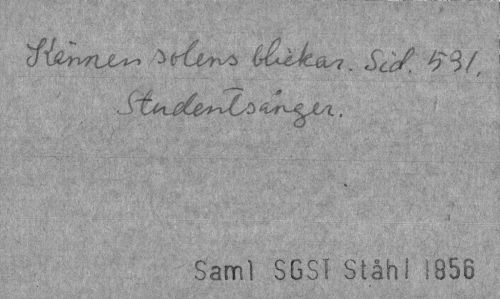 Kännen solens blickar. Sid. 531.
Studentsånger.
Saml SGSI Ståhl 1856